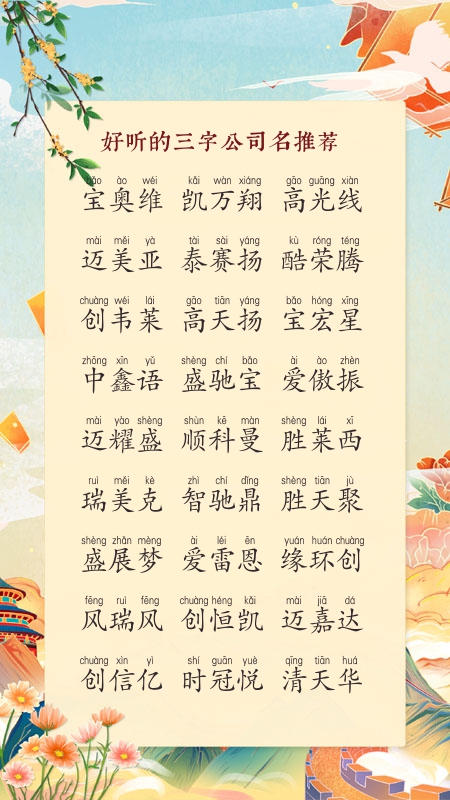 好听的三字公司名推荐
bǎo ào wéi kǎi wàn xiáng gāo guāng xiàn
宝奥维 凯万翔 高光线
mài měi yà tài sài yáng kù róng téng
迈美亚 泰赛扬 酷荣腾
chuàng wéi lái gāo tiān yáng bǎo hóng xīng
创韦莱 高天扬 宝宏星
zhōng xīn yǔ shèng chí bǎo ài ào zhèn
中鑫语 盛驰宝 爱傲振
mài yào shèng shùn kē màn shèng lái xī
迈耀盛 顺科曼 胜莱西
ruì měi kè zhì chí dǐng shèng tiān jù
瑞美克 智驰鼎 胜天聚
shèng zhǎn mèng ài léi ēn yuán huán chuàng
盛展梦 爱雷恩 缘环创
fēng ruì fēng chuàng héng kǎi mài jiā dá
风瑞风 创恒凯 迈嘉达
chuàng xìn yì shí guān yuè qīng tiān huá
创信亿 时冠悦 清天华